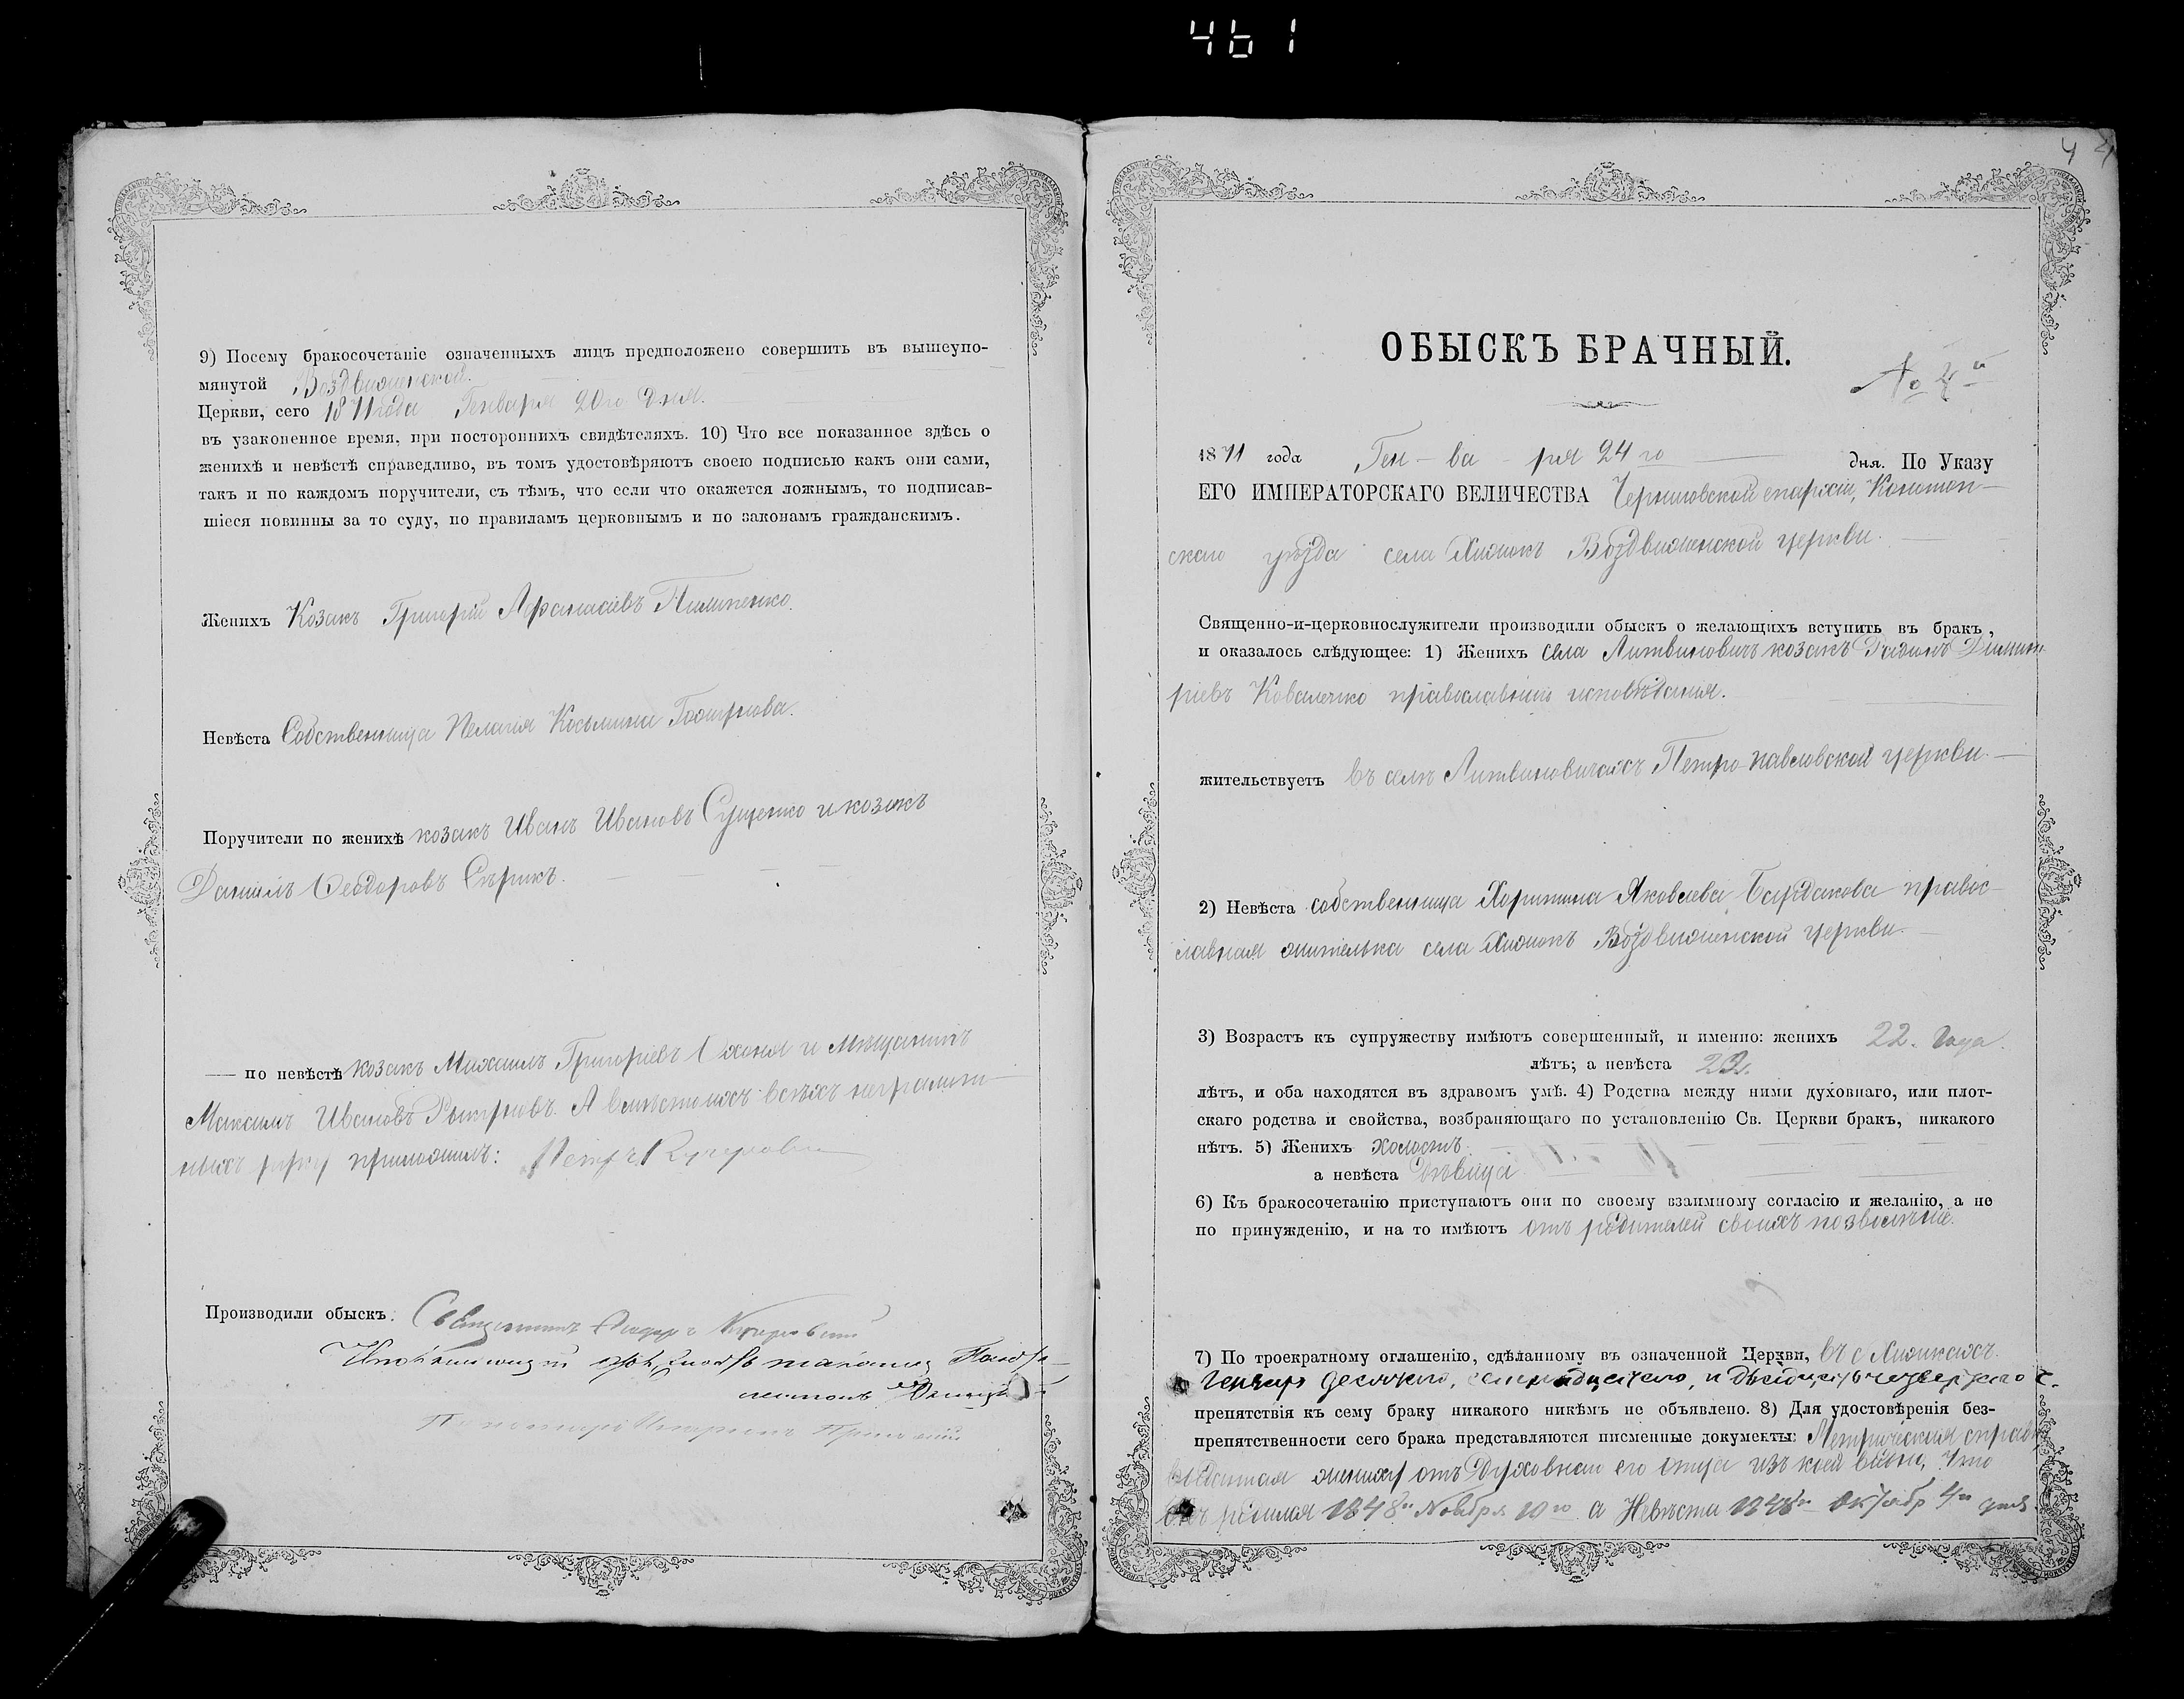 461
9) Посему бракосочетаніе означенныхъ лицъ предположено совершить въ вышеупо-
мянутой Воздвиженской
Церкви, сего 1871 года Генваря 20го дня.
въ узаконенное время, при постороннихъ свидѣтеляхъ. 10) Что все показанное здѣсь о
женихѣ и невѣстѣ справедливо, въ томъ удостовѣряютъ своею подписью какъ они сами,
такъ и по каждомъ поручители, съ тѣмъ, что если что окажется ложнымъ, то подписав-
шіеся повинны за то суду, по правиламъ церковнымъ и по законамъ гражданскимъ.
Женихъ Козакъ Григорій Афанасіевъ Пилипенко.
Невѣста Собственница Пелагія Косьмина
Поручители по женихѣ козакъ Иванъ Ивановъ Сущенко и козакъ
Даніилъ Ѳеодоровъ Сѣрикъ.
— по невѣстѣ козакъ Михаилъ Григоріевъ и Мѣщанинъ
Максимъ Ивановъ А вмѣсто ихъ всѣхъ неграмот-
ныхъ руку приложилъ: Петръ
Производили обыскъ: Священникъ
4
ОБЫСКЪ БРАЧНЫЙ.
№ 4й
1871 года Ген-ва-ря 24го дня. По Указу
ЕГО ИМПЕРАТОРСКАГО ВЕЛИЧЕСТВА Черниговской епархіи, Конотоп-
скаго уѣзда села Хижокъ Воздвиженской церкви.
Священно-и-церковнослужители производили обыскъ о желающихъ вступить въ бракъ,
и оказалось слѣдующее: 1) Женихъ села Литвиновичъ козакъ Родіонъ Димит-
ріевъ Коваленко православнаго исповѣданія.
жительствуетъ въ селѣ Литвиновичахъ Петро-павловской церкви.
2) Невѣста собственница Харитина Яковлева Бардакова правос-
лавная жителька села Хижокъ Воздвиженской церкви.
3) Возрастъ къ супружеству имѣютъ совершенный, и именно: женихъ 22. года.
лѣтъ; а невѣста 22.
лѣтъ, и оба находятся въ здравомъ умѣ. 4) Родства между ними духовнаго, или плот-
скаго родства и свойства, возбраняющаго по установленію Св. Церкви бракъ, никакого
нѣтъ. 5) Женихъ холостъ
а невѣста дѣвица
6) Къ бракосочетанію приступаютъ они по своему взаимному согласію и желанію, а не
по принужденію, и на то имѣютъ отъ родителей своихъ позволеніе.
7) По троекратному оглашенію, сдѣланному въ означенной Церкви, въ с. Хижкахъ
Генваря десятаго, семнадцатаго, и двадцать четвертаго ч.
препятствія къ сему браку никакого никѣмъ не объявлено. 8) Для удостовѣренія без-
препятственности сего брака представляются писменные документы: Метрическая справка
выданная жениху отъ Духовнаго его отца изъ коей видно, что
онъ родился 1848го Ноября 10го а Невѣста 1848го Октября 4го дня